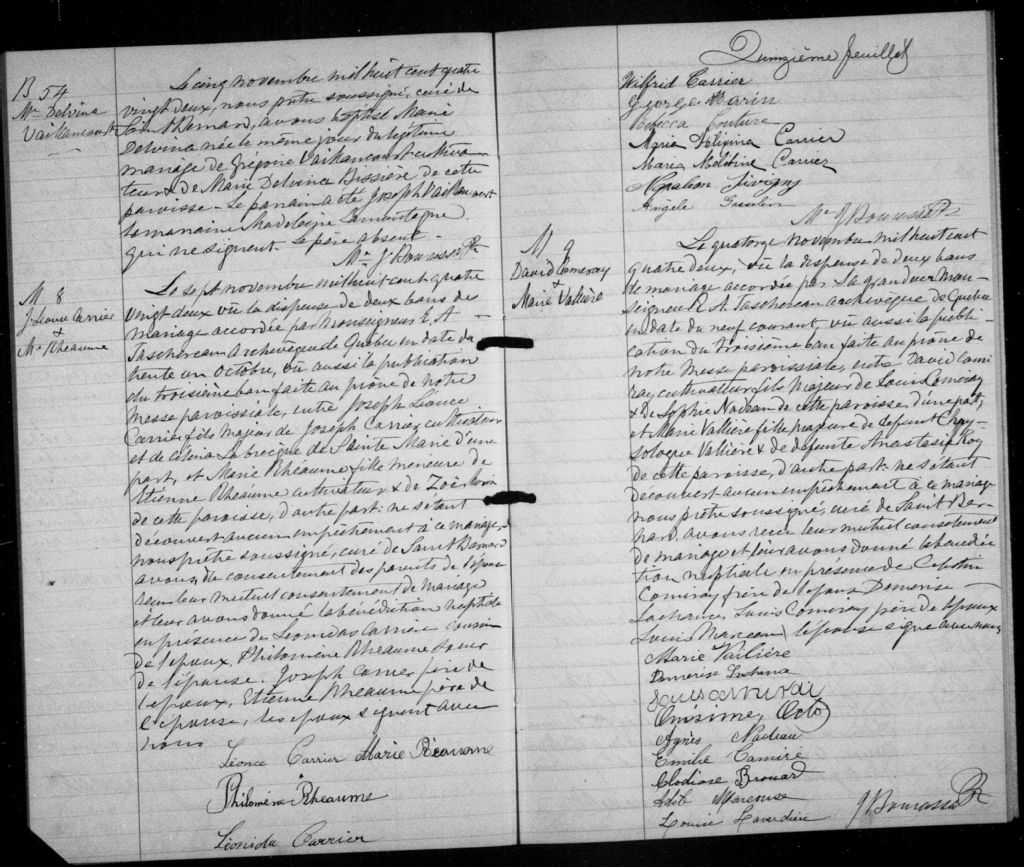 B 54
Me Delvina
Vaillancourt
Le cinq novembre mil huit cent quatre
vingt deux, nous prêtre soussigné, curé de
Saint Bernard, avons baptisé Marie
Delvina née le même jour du légitime
mariage de Grégoire Vaillancourt cultiva-
teur & de Marie Delvina Bissière de cette
paroisse. Le parrain a été Joseph Vaillancourt
la marraine Madeleine Lamontagne
qui ne signent. le père absent.
J Bourassa Ptr
M 8
J Leonce Carrier
&
Me Rheaume
Le sept novembre mil huit cent quatre
vingt deux vû la dispense de deux bans de
mariage accordée par Monseigneur E. A
Taschereau Archevêque de Québec en date du
trente un Octobre, vû aussi la publication
du troisième ban faite au prône de notre
Messe paroissiale, entre Joseph Léonce
Carrier fils majeur de Joseph Carrier cultivateur
et de Labrecque de Sainte Marie d'une
part, et Marie Rheaume fille mineure de
Etienne Rhéaume cultivateur & de Zoé Morin
de cette paroisse, d'autre part: ne s'étant
découvert aucun empêchement à ce mariage,
nous prêtre soussigné, curé de Saint Bernard
avons, du consentement des parents de l'épouse
reçu leur mutuel consentement de mariage
et leur avons donné la bénédiction nuptiale
en présence de Leonidas Carrier cousin
de l'époux, Philomène Rheaume soeur
de l'épouse. Joseph Carrier père de
l'époux, Etienne Rheaume père de
l'épouse, les époux signent avec
nous
Léonce Carrier Marie Réaume
Philomène Rheaume
Léonida Carrier
Quinzième feuillet
Wilfrid Carrier
George Marin
Rebecca Couture
Carrier
Marie Carrier
Napoléon Sivigny
Angèle Gosselin
J Bourassa Ptr
M 9
David Comeray
&
Marie Vallière
Le quatorze novembre mil huit cent
quatre deux, vû la dispense de deux bans
de mariage accordée par Sa grandeur Mon-
seigneur E. A. Taschereau archevêque de Québec
en date du neuf courant, vû aussi la publi-
cation du troisième ban faite au prône de
notre messe paroissiale, entre David Comé
ray, cultivateur fils majeur de Louis Comeray
& de Sophie Nadeau de cette paroisse, d'une part,
et Marie Vallière fille mineure de défunt Chry-
sologue Vallière & de défunte Anastasie Roy
de cette paroisse, d'autre part: ne s'étant
découvert aucun empêchement à ce mariage
nous prêtre soussigné, curé de Saint Ber-
nard, avons reçu leur mutuel consentement
de mariage et leur avons donné la bénédic
tion nuptiale en présence de Célestin
Comeray frère de l'époux Demerise
Lachance, Louis Comeray père de l'époux
Louis Marceau, l'épouse signe avec nous
Marie Valière
Demerise Lachance
Onésime
Agnès Nadeau
Emilie Camiré
Clodiase Brouard
Marcouse
Louise Laverdière
J Bourassa Ptr